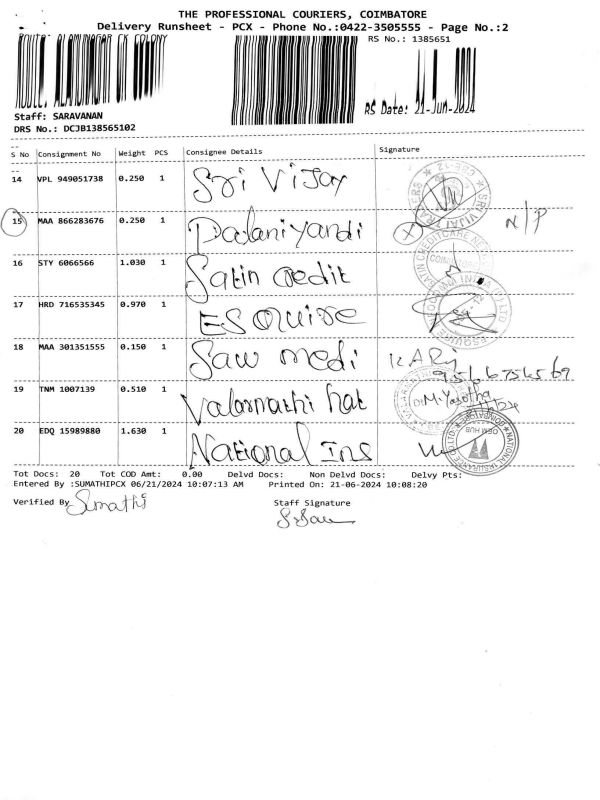 THE PROFESSIONAL COURIERS, COIMBATORE
Delivery Runsheet - PCX - Phone No.:0422-3505555 - Page No.:2
Route: ALAMUNAGAR CK COLONY
RS No.: 1385651
RS Date: 21-Jun-2024
Staff: SARAVANAN
DRS No.: DCJB138565102
S No Consignment No Weight PCS Consignee Details Signature
14 VPL 949051738 0.250 1 Sri Vijay
15 MAA 866283676 0.250 1 Palaniyandi X N/P
16 STY 6066566 1.030 1 Satin Credit
17 HRD 716535345 0.970 1 ESQUIRE
18 MAA 301351555 0.150 1 Saw medi
19 TNM 1007139 0.510 1 Valarmathi hat M. Yasotha
20 EDQ 15989880 1.630 1 National Ins
Tot Docs: 20 Tot COD Amt: 0.00 Delvd Docs: Non Delvd Docs: Delvy Pts:
Entered By :SUMATHIPCX 06/21/2024 10:07:13 AM Printed On: 21-06-2024 10:08:20
Verified By Sumathi Staff Signature